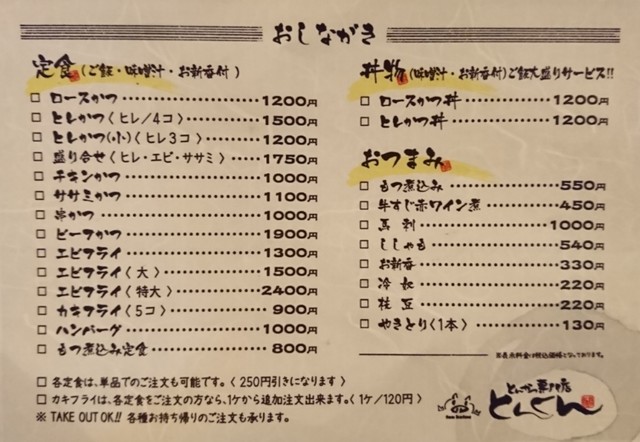 おしながき
定食(ご飯・味噌汁・お新香付)
□ ロースかつ 1200円
□ ヒレかつ〈ヒレ/4コ〉 1500円
□ ヒレかつ(小)〈ヒレ3コ〉 1200円
□ 盛り合せ〈ヒレ・エビ・ササミ〉 1750円
□ チキンかつ 1000円
□ ササミかつ 1100円
□ 串かつ 1000円
□ ビーフかつ 1900円
□ エビフライ 1300円
□ エビフライ〈大〉 1500円
□ エビフライ〈特大〉 2400円
□ カキフライ〈5コ〉 900円
□ ハンバーグ 1000円
□ もつ煮込み定食 800円
□ 各定食は、単品でのご注文も可能です。〈250円引きになります〉
□ カキフライは、各定食をご注文の方なら、1ケから追加注文出来ます。〈1ケ/120円〉
※ TAKE OUT OK!! 各種お持ち帰りのご注文も承ります。
丼物(味噌汁・お新香付)ご飯大盛りサービス!!
□ ロースかつ丼 1200円
□ ヒレかつ丼 1200円
おつまみ
□ もつ煮込み 550円
□ 牛すじ赤ワイン煮 450円
□ 馬刺 1000円
□ ししゃも 540円
□ お新香 330円
□ 冷奴 220円
□ 枝豆 220円
□ やきとり〈1本〉 130円
とんかつ専門店
とんくん